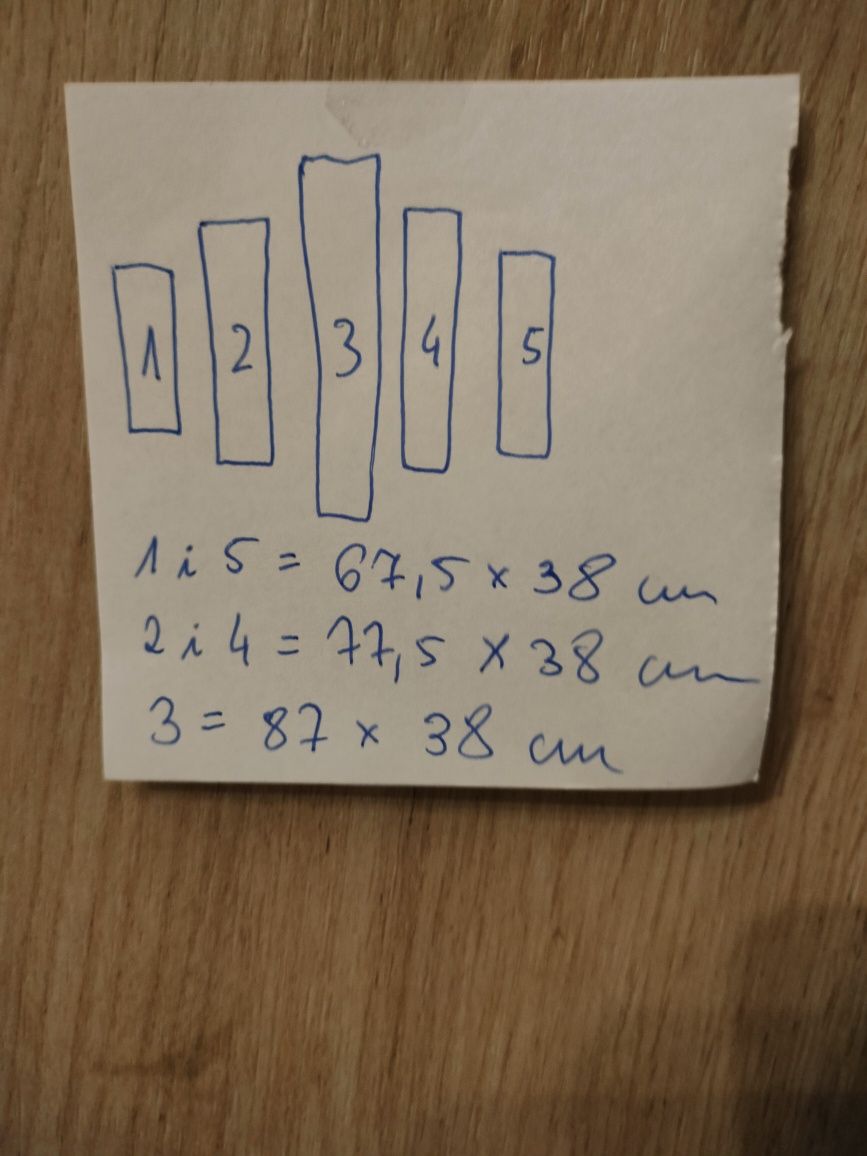 1 2 3 4 5
1 i 5 = 67,5 x 38 cm
2 i 4 = 77,5 x 38 cm
3 = 87 x 38 cm